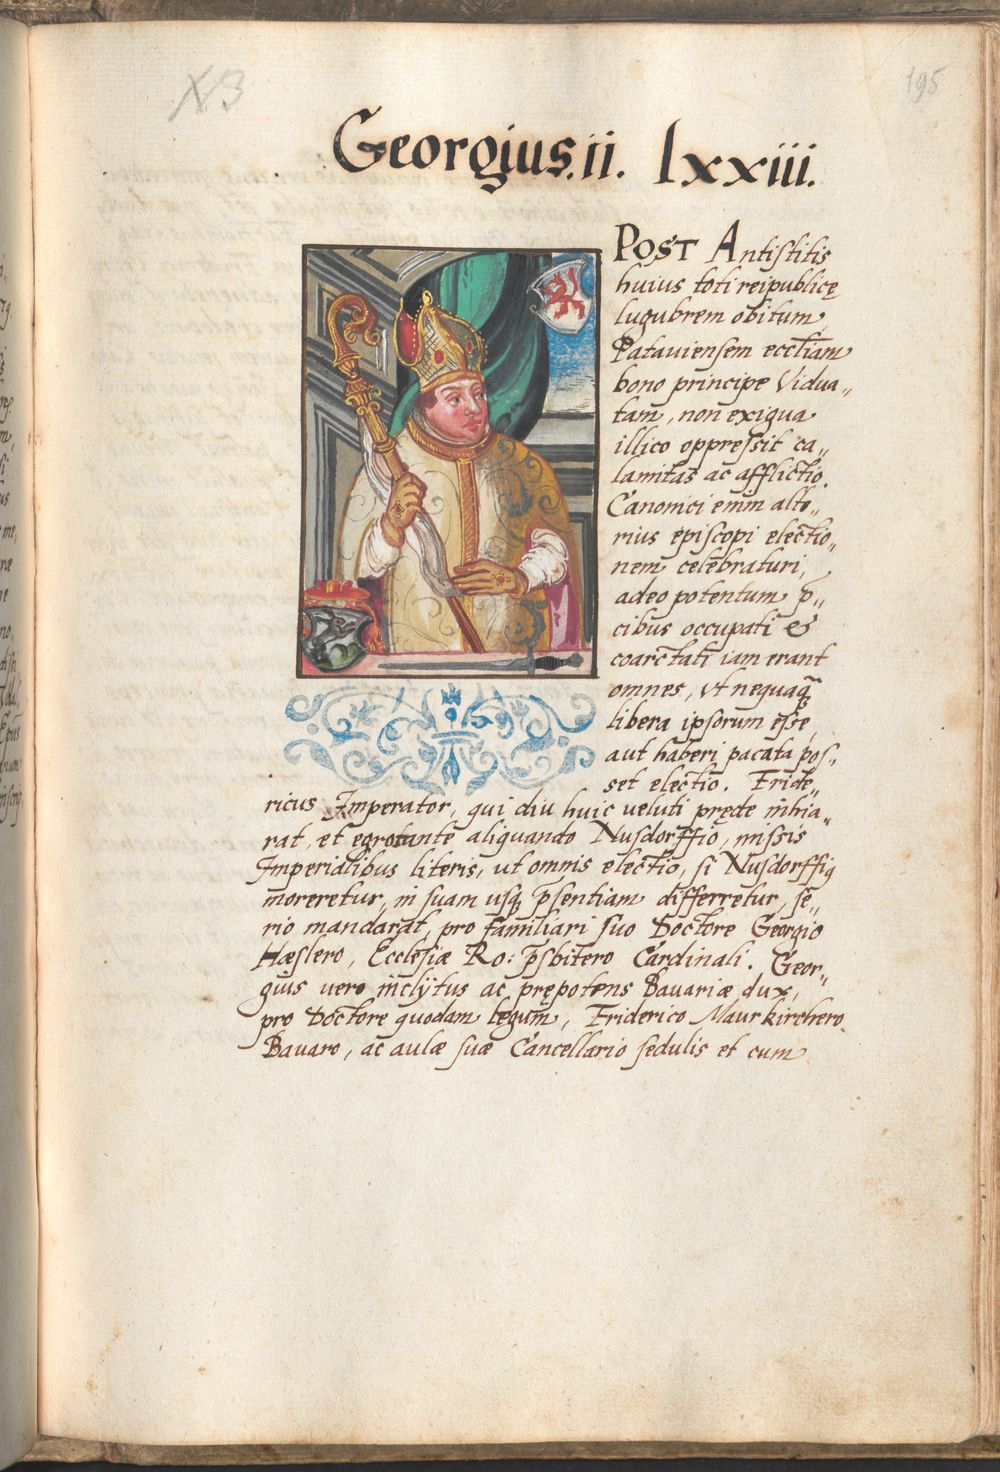 195
Georgius.ii. lxxiii.
POST Antistitis
huius toti reipublicę
lugubrem obitum,
Patauiensem eccl̃iam
bono principe Vidua„
tam, non exigua
illico oppressit ca„
lamitas ac afflictio.
Canonici enim alte„
rius episcopi electio„
nem celebraturi,
adeo potentum p̄„
cibus occupati &
coarctati iam erant
omnes, vt nequaq̃
libera ipsorum esse,
aut haberi pacata pos„
set electio. Fride„
ricus Imperator, qui diu huic veluti prędę inhia„
rat, et egrotante aliquando Nusdorffio, missis
Imperialibus literis, ut omnis electio, si Nusdorffiꝰ
moreretur, in suam usq̃ p̄sentiam differretur, se„
rio mandarat, pro familiari suo Doctore Georgio
Hæslero, Ecclesiæ Ro: p̄sbitero Cardinali. Geor„
gius vero inclÿtus ac prępotens Bavariæ dux,
pro Doctore quodam legum, Friderico Maurkirchero
Bavaro, ac aulæ suæ Cancellario sedulis et cum